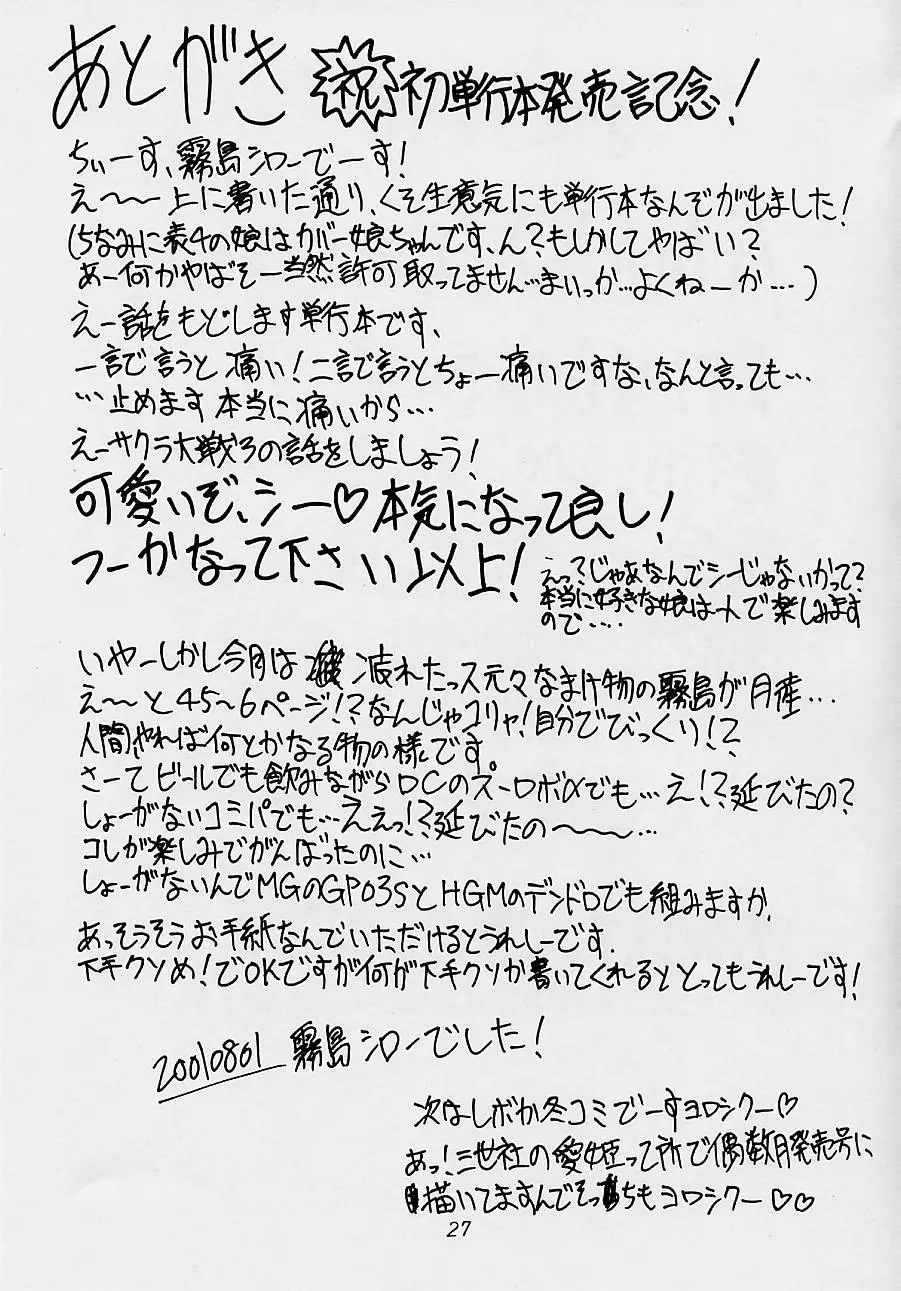 あとがき 祝 初単行本発売記念!
ちぃーす、霧島シローでーす!
え〜〜上に書いた通り、くそ生意気にも単行本なんぞが出ました!
(ちなみに表4の娘はカバー娘ちゃんです、ん?もしかしてやばい?
あー何かやばそー当然許可取ってません…まいっか…よくねーか…)
えー話をもどします単行本です、
一言で言うと痛い!二言で言うとちょー痛いですな、なんと言っても…
…止めます本当に痛いから…
えーサクラ大戦3の話をしましょう!
可愛いぞ、シー♡本気になって良し!
つーかなって下さい以上!
えっ?じゃあなんでシーじゃないかって?
本当に好きな娘は一人で楽しみます
ので‥‥
いやーしかし今月は 疲れたっス元々なまけ物の霧島が月産…
え〜と45〜6ページ!?なんじゃコリャ!自分でびっくり!?
人間やれば何とかなる物の様です
さーてビールでも飲みながらDCのスーロボαでも…え!?延びたの?
しょーがないコミパでも…ええっ!?延びたの〜〜〜…
コレが楽しみでがんばったのに…
しょーがないんでMGのGP03SとHGMのデンドロでも組みますか、
あっそうそうお手紙なんでいただけるとうれしーです.
下手クソめ!でOKですが何が下手クソか書いてくれるととってもうれしーです!
20010801 霧島シローでした!
次はしぼか冬コミでーすヨロシクー♡
あっ!三世社の愛姫って所で偶数月発売号に
描いてますんでそっちもヨロシクー♡♡
27